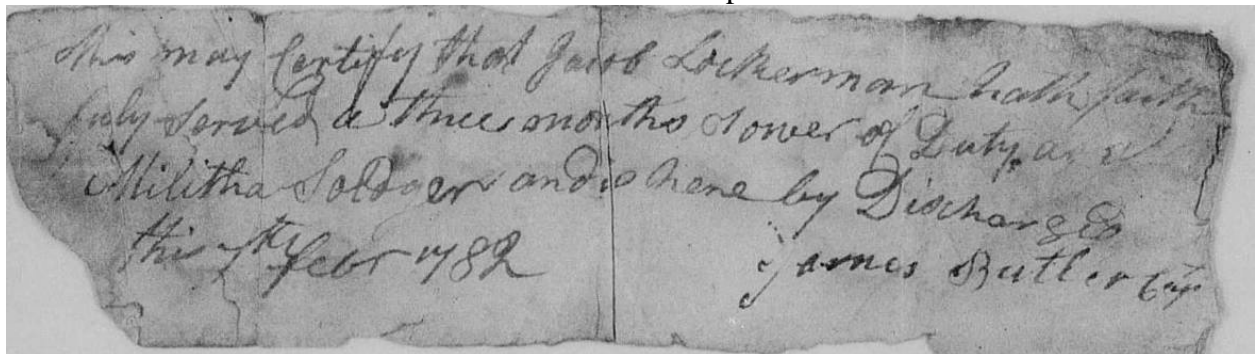 this may Certify that Jacob Lockerman hath faith
fuly Served a three months Tower of Duty as a
Militha Soldger and is here by Discharged
this 7th febr 1782
James Butler Cap